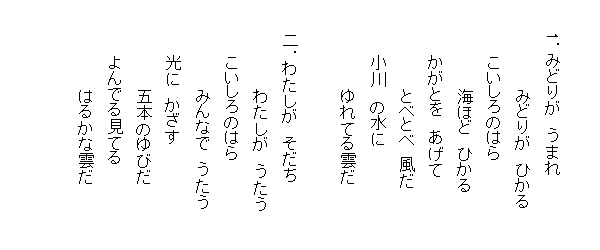 一．みどりが うまれ
みどりが ひかる
こいしろのはら
海ほど ひかる
かがとを あげて
とべとべ 風だ
小川 の水に
ゆれてる雲だ
二．わたしが そだち
わたしが うたう
こいしろのはら
みんなで うたう
光に かざす
五本のゆびだ
よんでる見てる
はるかな雲だ